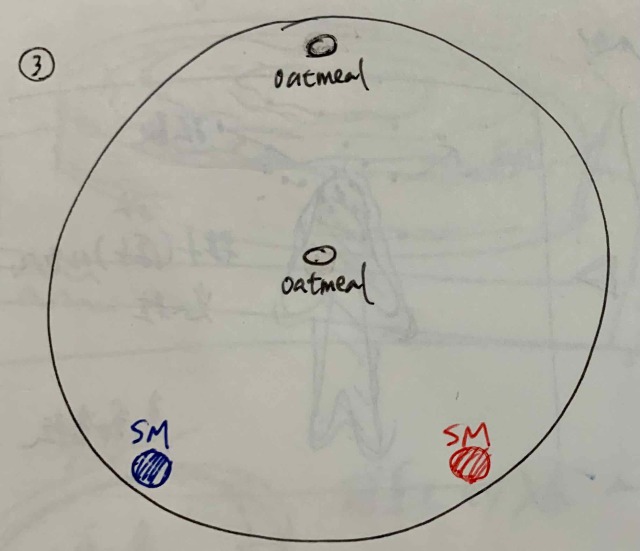 ③
oatmeal
oatmeal
SM
SM